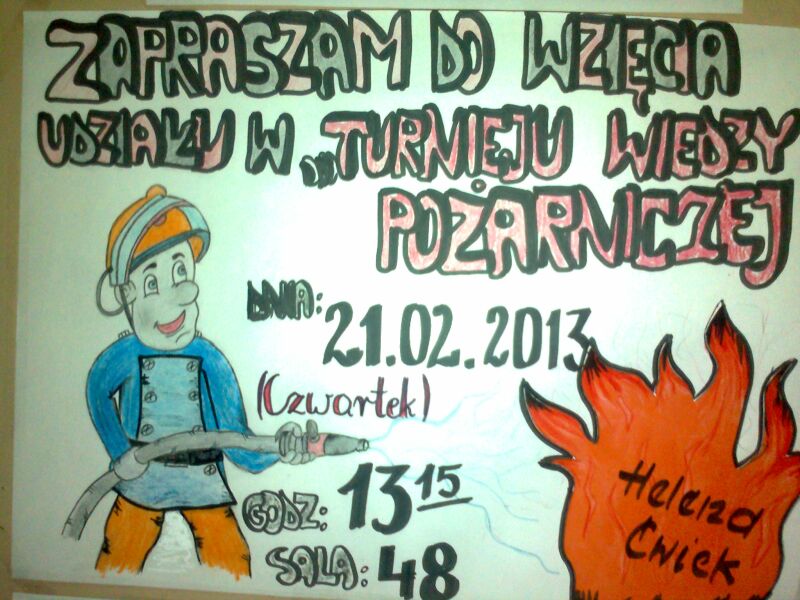 ZAPRASZAM DO WZIĘCIA
UDZIAŁU W „TURNIEJU WIEDZY
POŻARNICZEJ
DNIA: 21.02.2013
(Czwartek)
GODZ: 13 15
SALA: 48
Helena
Ćwiek